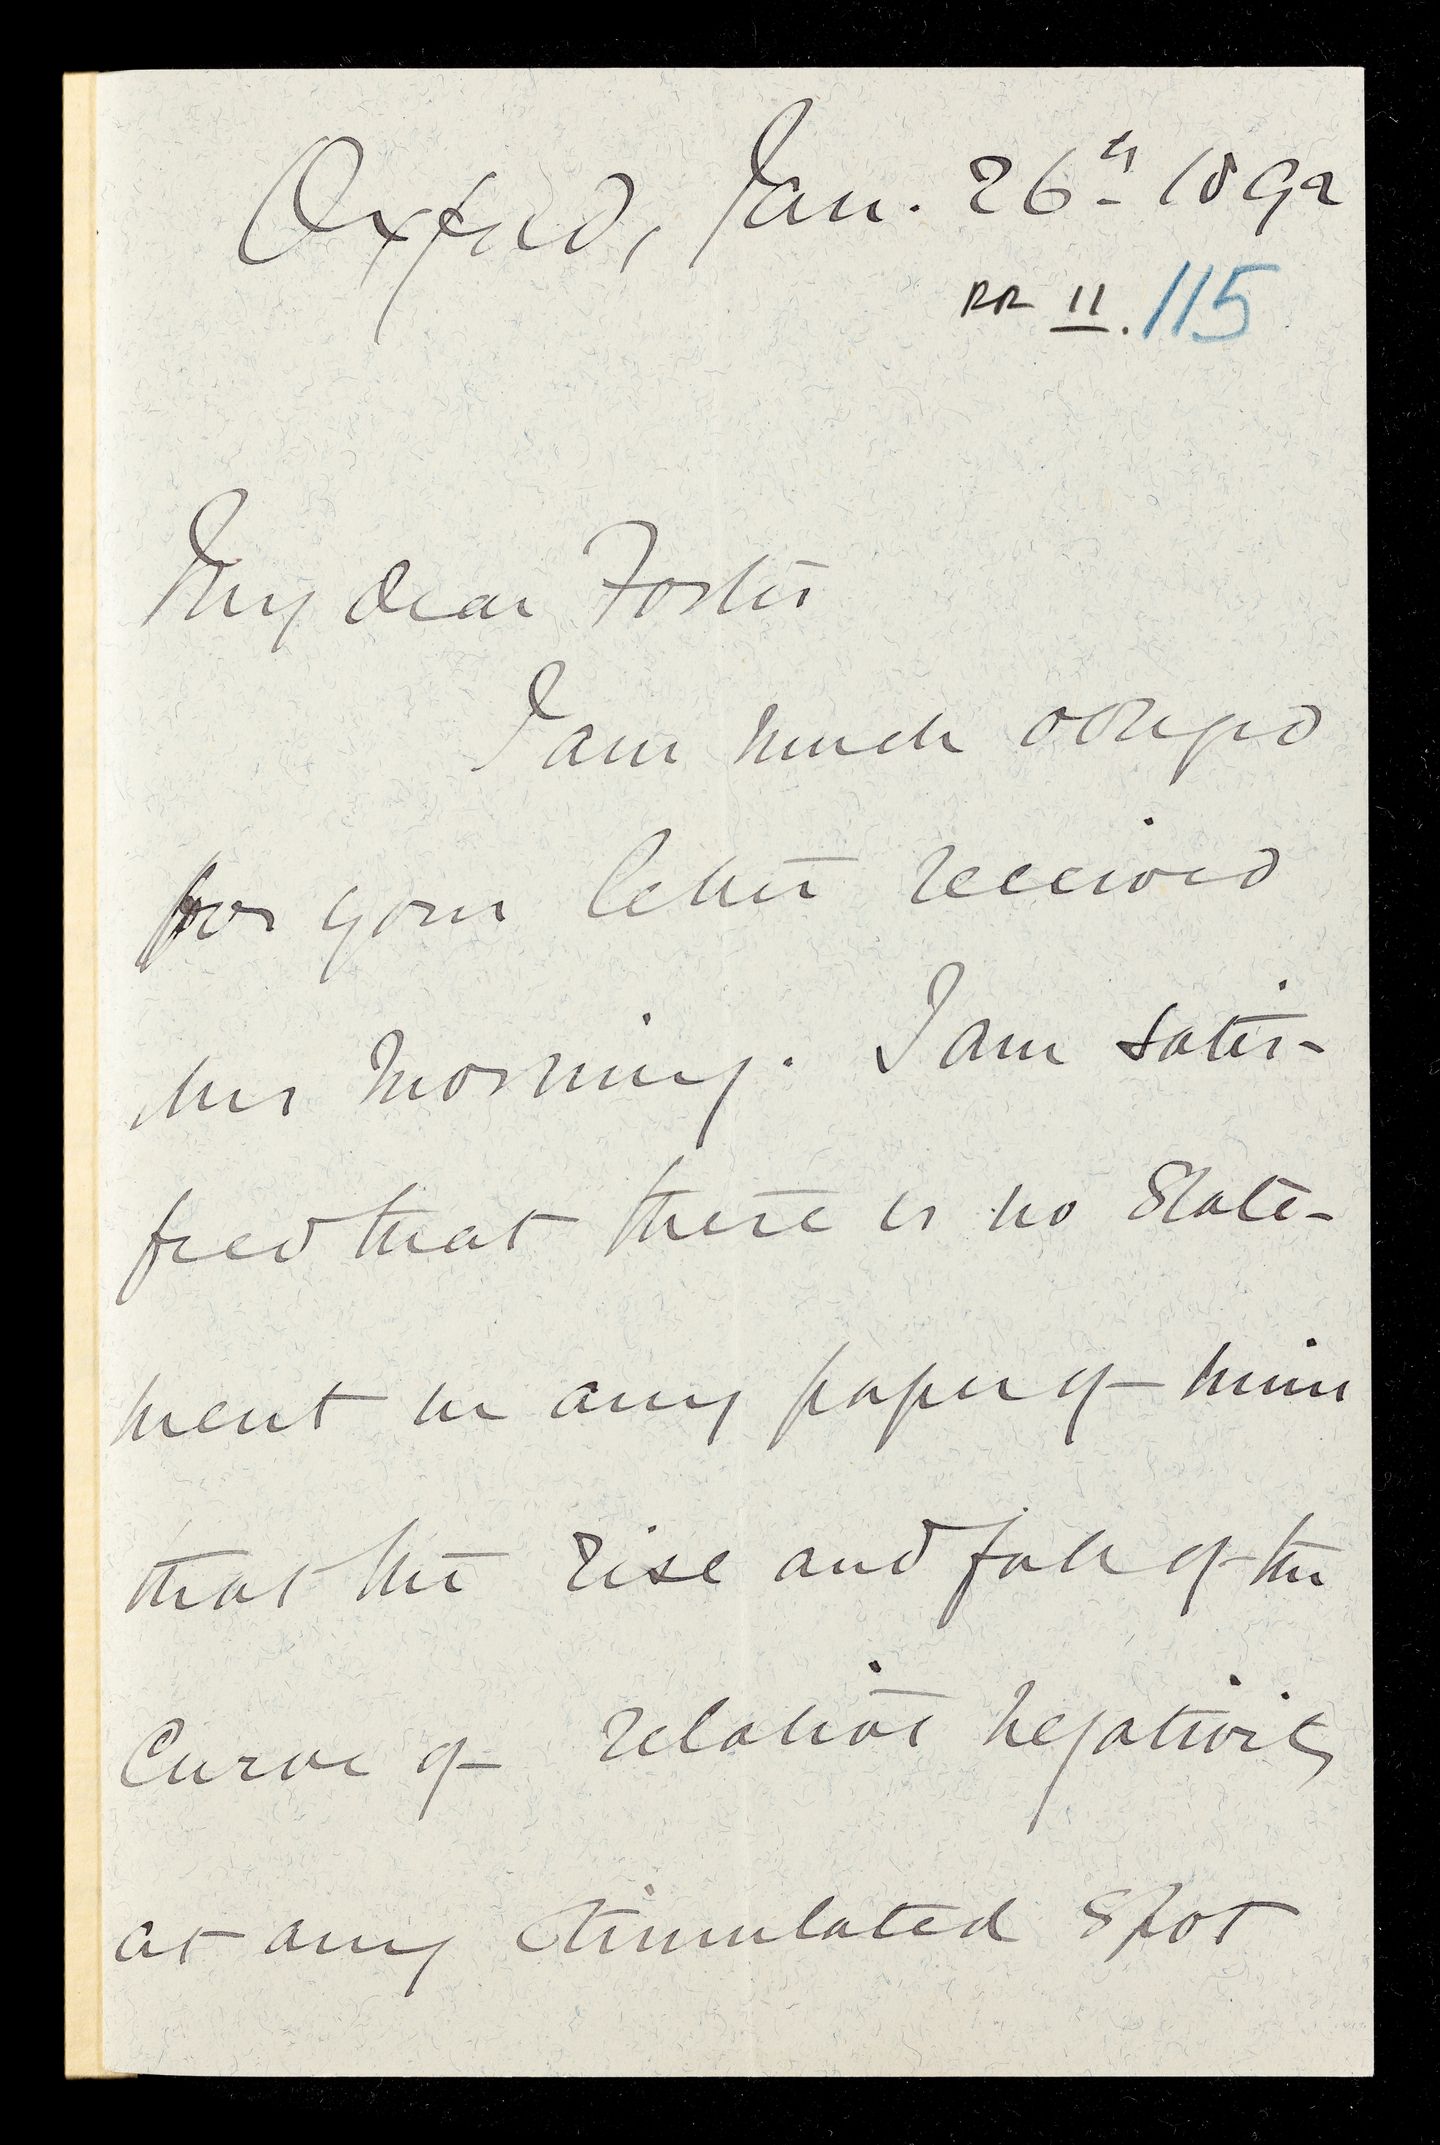 Oxford, Jan. 26th 1892
RR II. 115
My dear Foster
I am much obliged
for your letter received
this morning. I am satis-
fied that there is no state-
ment in any paper of mine
that the rise and fall of the
Curve of relative negativity
at any stimulated spot